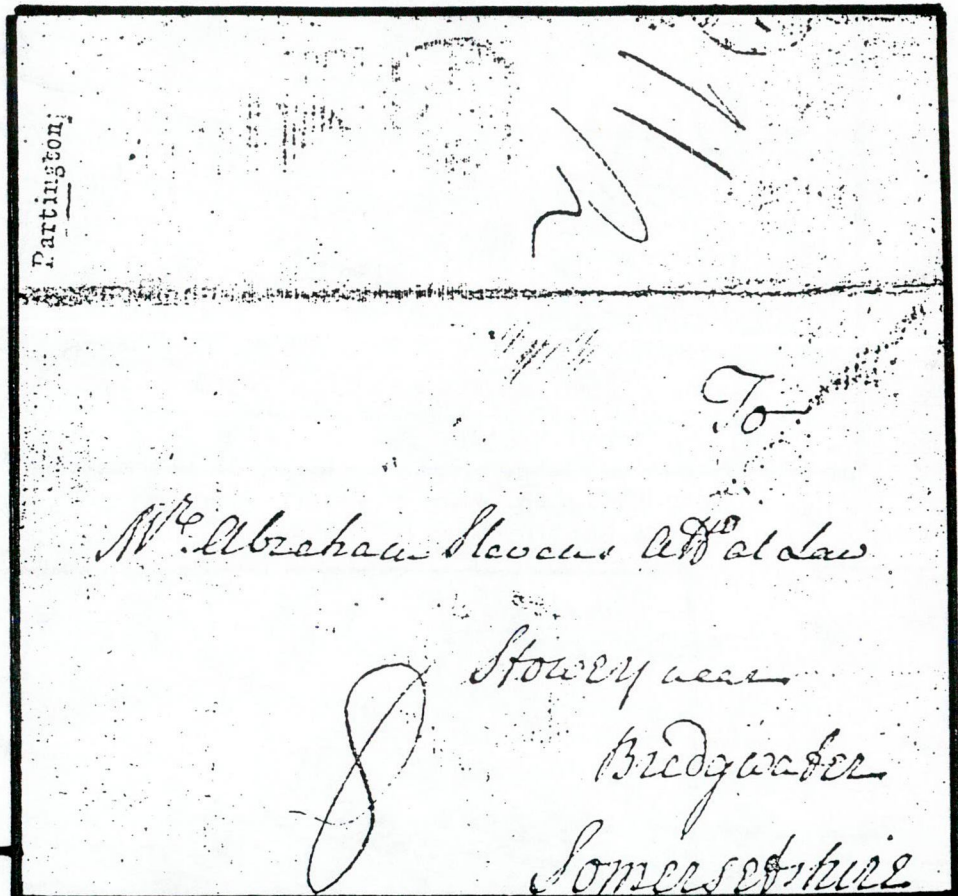 Partington;
To
Mr. Abraham Stevens Atty at Law
Stowey near
Bridgwater
Somersetshire
8